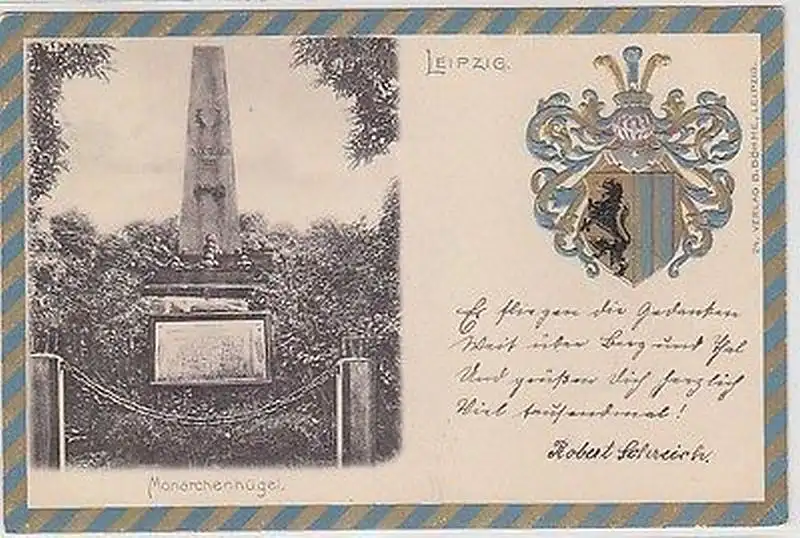 LEIPZIG.
24. VERLAG B. DÖHME, LEIPZIG.
Es fliegen die Gedanken
Weit über Berg und Thal
Und grüßen Dich herzlich
Viel tausendmal!
Robert
Monarchenhügel.